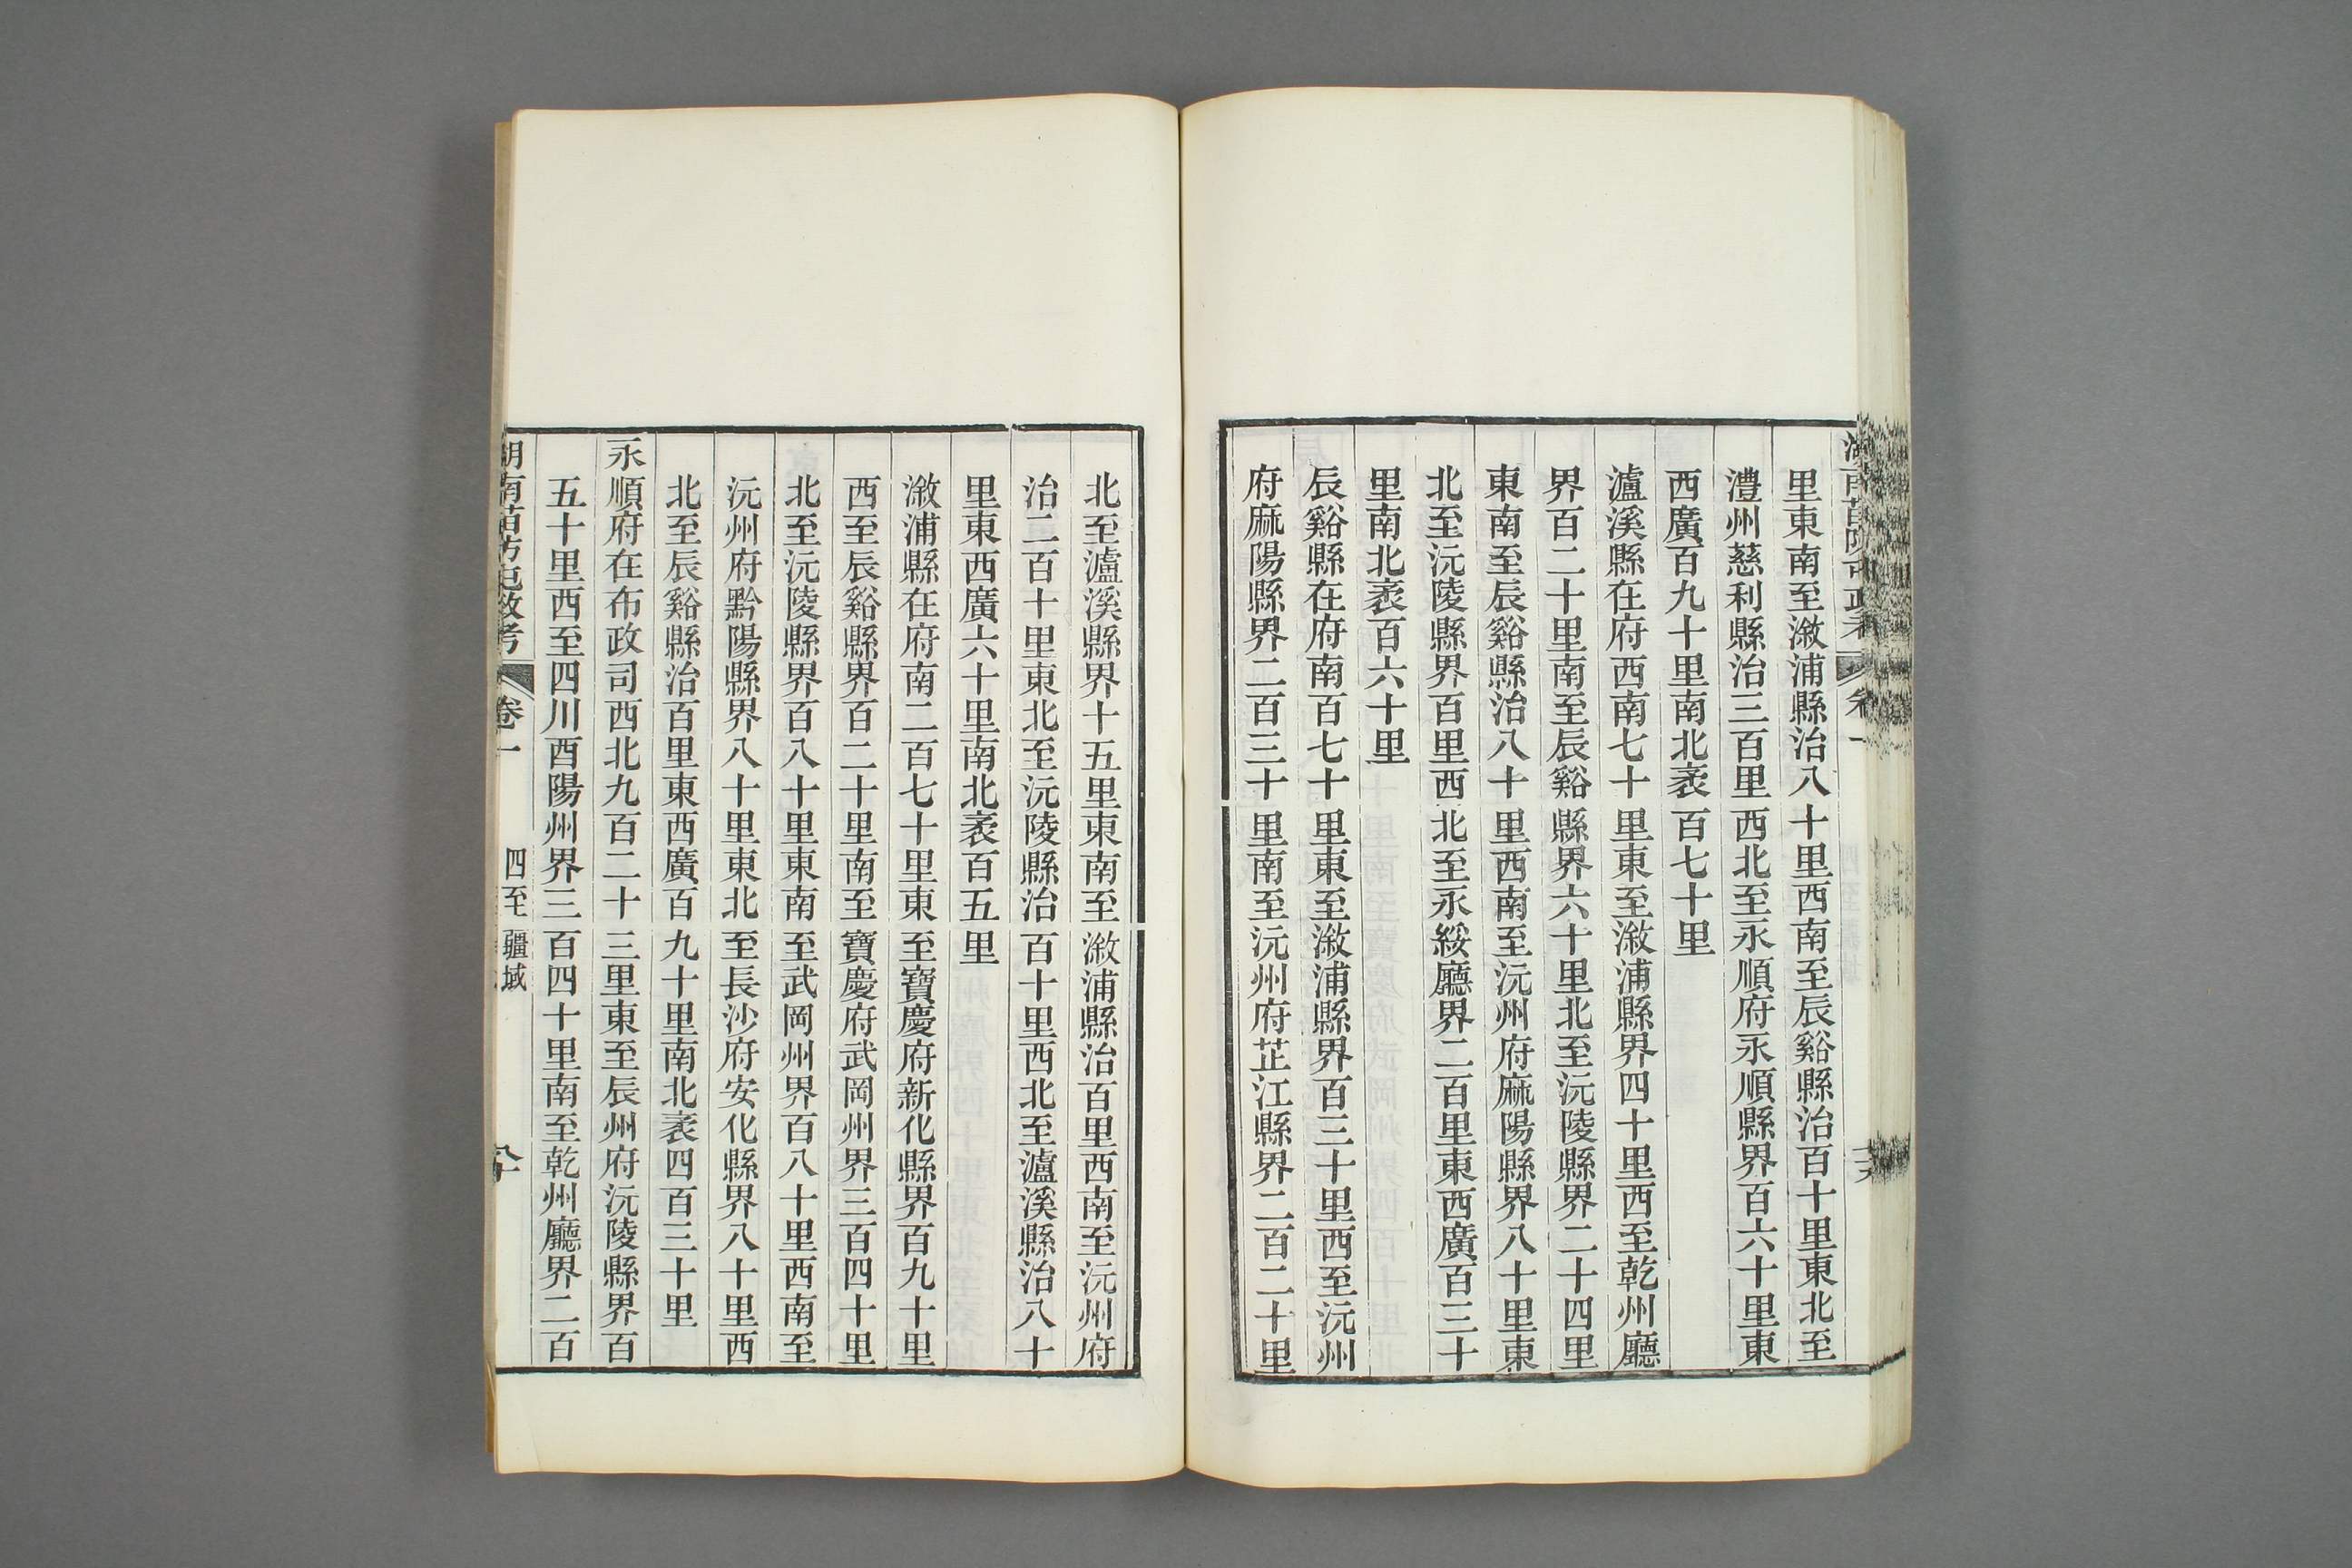 里東南至漵浦縣治八十里西南至辰谿縣治百十里東北至
澧州慈利縣治三百里西北至永順府永順縣界百六十里東
西廣百九十里南北袤百七十里
瀘溪縣在府西南七十里東至漵浦縣界四十里西至乾州廳
界百二十里南至辰谿縣界六十里北至沅陵縣界二十四里
東南至辰谿縣治八十里西南至沅州府麻陽縣界八十里東
北至沅陵縣界百里西北至永綏廳界二百里東西廣百三十
里南北袤百六十里
辰谿縣在府南百七十里東至漵浦縣界百三十里西至沅州
府麻陽縣界二百三十里南至沅州府芷江縣界二百二十里
北至瀘溪縣界十五里東南至漵浦縣治百里西南至沅州府
治二百十里東北至沅陵縣治百十里西北至瀘溪縣治八十
里東西廣六十里南北袤百五里
漵浦縣在府南二百七十里東至寶慶府新化縣界百九十里
西至辰谿縣界百二十里南至寶慶府武岡州界三百四十里
北至沅陵縣界百八十里東南至武岡州界百八十里西南至
沅州府黔陽縣界八十里東北至長沙府安化縣界八十里西
北至辰谿縣治百里東西廣百九十里南北袤四百三十里
永順府在布政司西北九百二十三里東至辰州府沅陵縣界百
五十里西至四川酉陽州界三百四十里南至乾州廳界二百
卷一
四至疆域